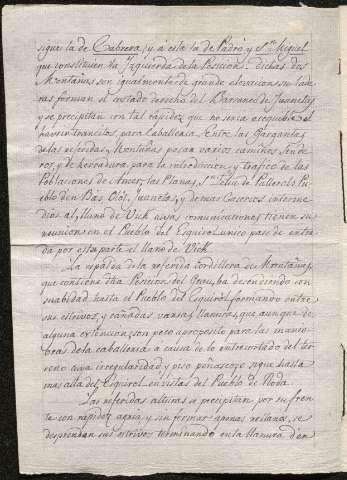 sigue la de Cabrera, y a esta la de Padró y Sn. Miguel
que constituien la Izquierda de la Posicion: dichas dos
Montañas son igualmente de grande elevacion; su lade-
ras forman el costado derecho del Barranco de Juanetas
y se precipitan con tal rapidez que no seria asequible el
hacerse transitos para Caballeria. Entre las Gargantas
de las referidas Montañas pasan varios caminos, Sende-
ros, y de herradura para la introduccion y trafico de las
Poblaciones de Amer, las Planas, Sn. Feliu de Pallerols Pu-
eblo den Bas Olot, Juanetas, y demas Caserios interme-
dios al llano de Vich cuias comunicaciones tienen su
reunion en el Pueblo del Esquirol unico paso de entra-
da por esta parte el llano de Vich.
La espalda de la referida cordillera de Montañas,
que contiene dha Posicion del Grau, ba descendiendo con
suabidad hasta el Pueblo del Esquirol formando entre
sus estrivos, y cañadas varias llanuras, que aunque de
alguna extencion, son poco aproposito para las manio-
bras de la caballeria a causa de lo entrecortado del ter-
reno cuya irregularidad y piso peñascoso sigue hasta
mas alla del Esquirol en vistas del Pueblo de Roda.
Las referidas alturas se precipitan por su fren-
te con rapidez agria y sin formar apenas rellano, se
desprenden sus estrivos terminando en la llanura d'en